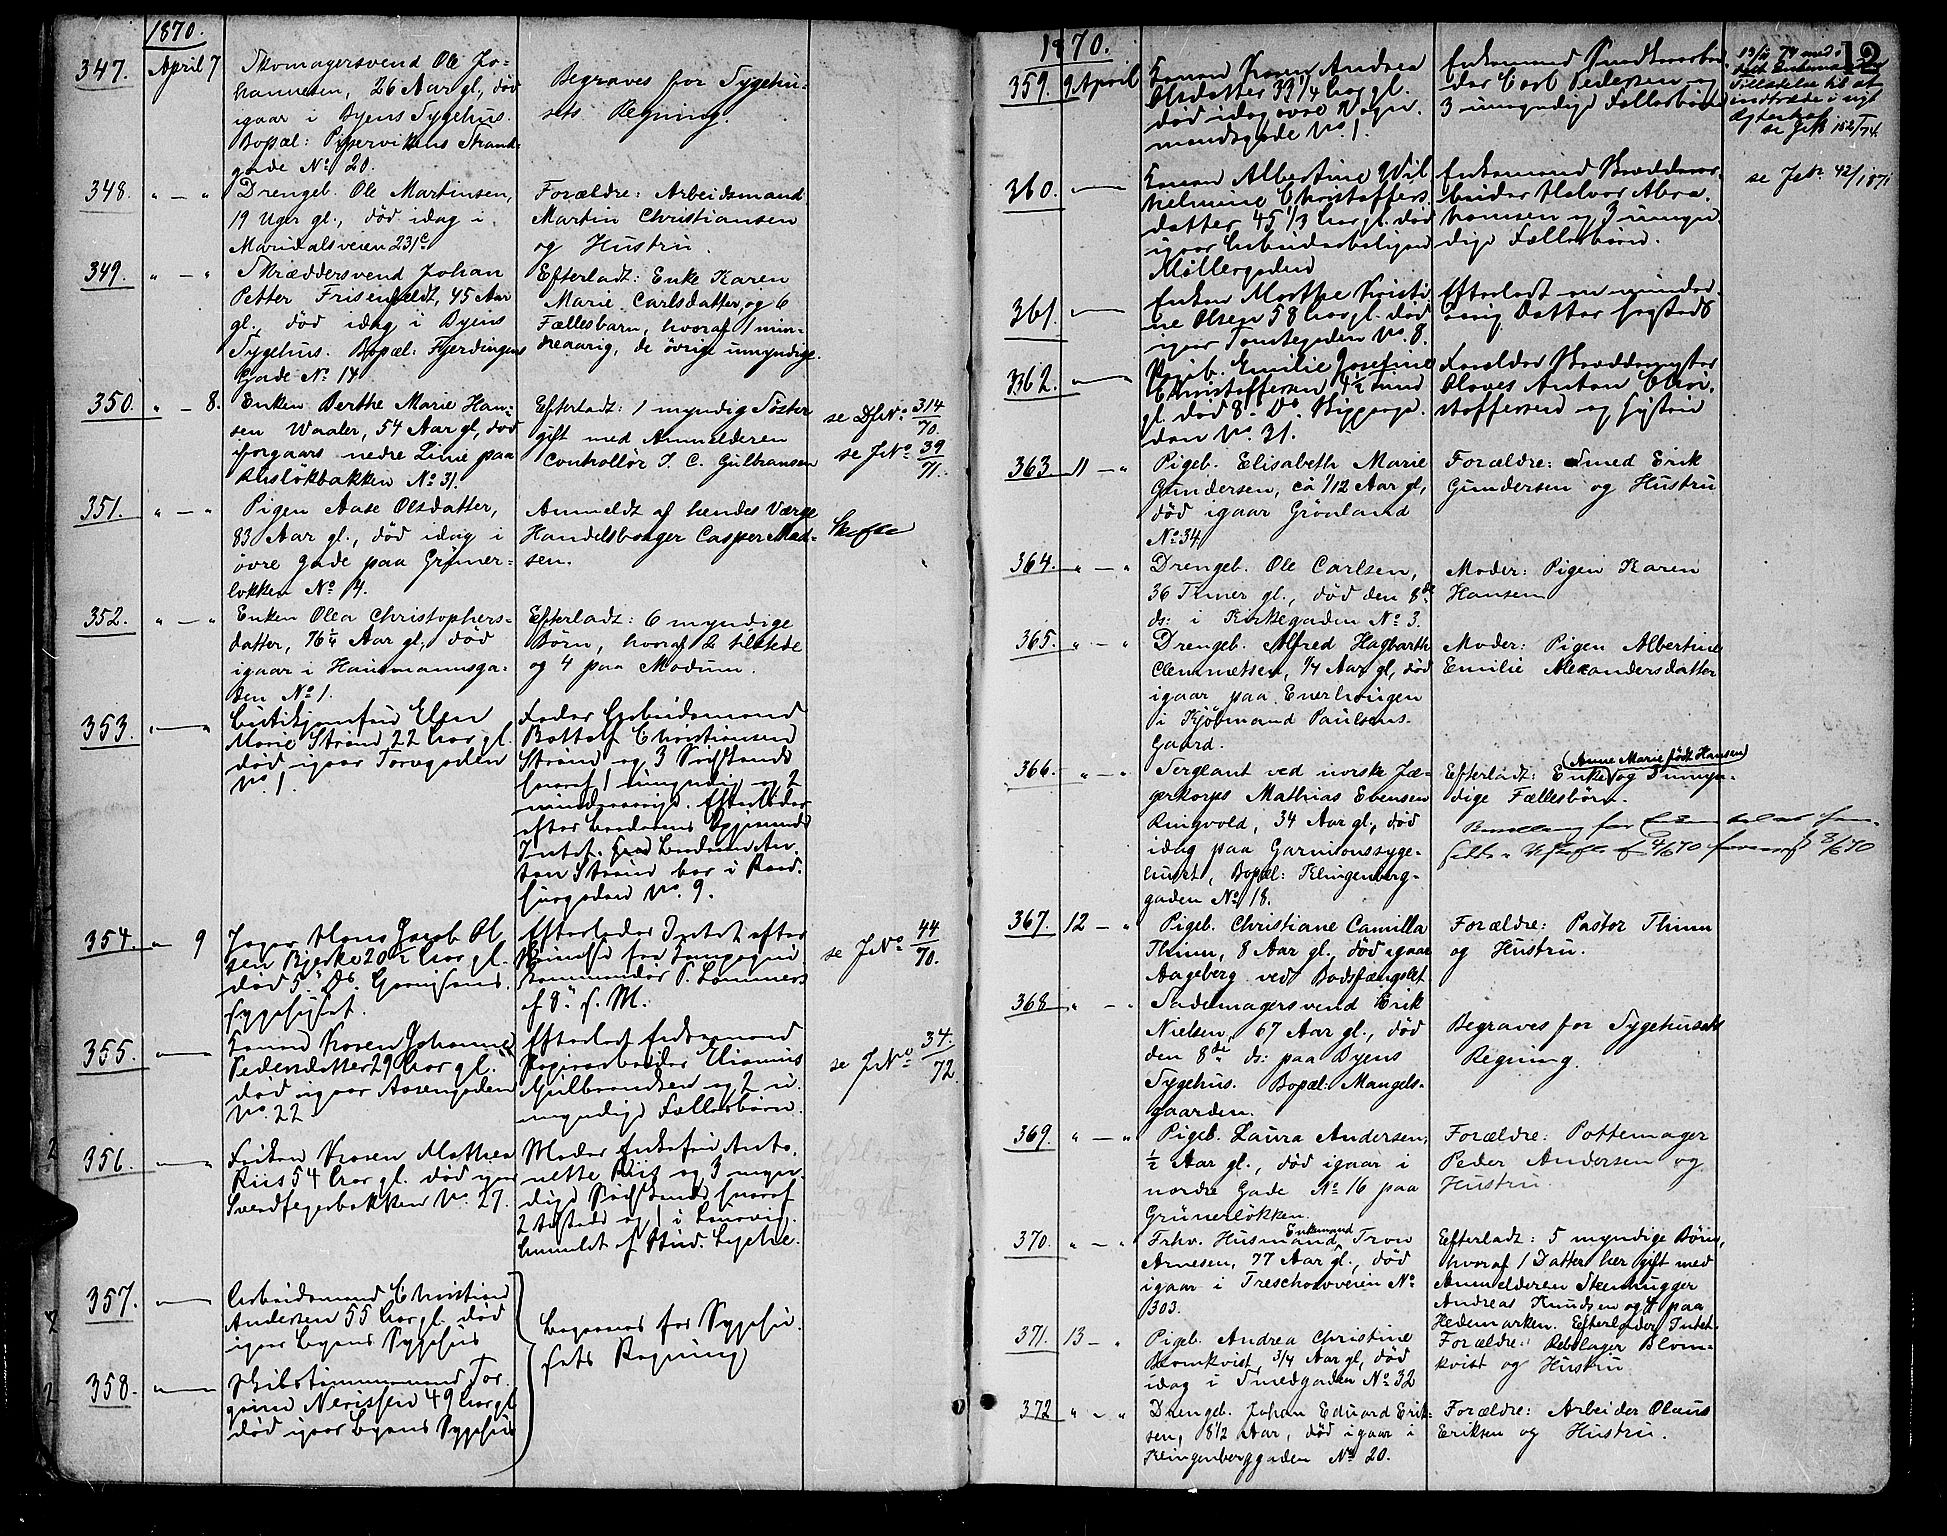 1870.
347. April 7 Skomagersvend Ole Jo-
hannesen, 26 Aar gl., død
igaar i Byens Sygehus.
Bopæl: Pipervikens Strand-
gade No 20.
Begraves for Sygehu-
sets Regning.
348. " — " Drengeb. Ole Martinsen,
19 Uger gl., død idag i
Maridalsveien 231c
Forældre: Arbeidsmand
Martin Christiansen
og Hustru.
349. " — " Skræddersvend Johan
Petter Frisenfeldt, 45 Aar
gl., død idag i Byens
Sygehus. Bopæl: Fjerdingens
Gade No 14
Efterladt: Enke Karen
Marie Carlsdatter, og 6
Fællesbarn, hvoraf 1 min-
dreaarig, de øvrige umyndige.
350. " — 8. Enken Berthe Marie Han-
sen Waaler, 54 Aar gl., død
iforgaars nedre Linie paa
No 31.
Efterladt: 1 myndig Søster
gift med Anmelderen
Controllør J. C. Gulbransen
se No 314/70.
se JNo 39/71.
351. " — " Pigen Aase Olsdatter,
83 Aar gl., død idag i
øvre gade paa Grüner-
løkken No 4.
Anmeldt af hendes Værge
Handelsborger Casper Mad-
sen.
Skifte
352. " — " Enken Olea Christophers-
datter, 76 1/4 Aar gl., død
igaar i Hausmannsga-
den No 1.
Efterladt: 6 myndige
Børn, hvoraf 2 tilstede
og 4 paa Modum.
353. — " Butikjomfru Elen
Marie Strand 22 Aar gl.
død igaar Torvgaden
No 1.
Fader Arbeidsmand
Christiansen
Strand og 3 Sødskende
hvoraf 1 umyndig og 2
mindreaarige. Efterlader
efter Broderens Udsigende
Intet. Broderen An-
ton Strand bor i Raad-
husgaden No 9.
354. " 9 Jæger Hans Jacob Ol-
sen Bjerke 20 1/2 Aar gl.
død 5. Ds. Garnisons-
sygehuset.
Efterlader Intet efter
Skrivelse fra Compagni
Kommandør P. Lammers
af 8. d. M.
se JNo 44/70.
355. — Konen Karen Johanne
Pedersdatter 29 Aar gl.
død igaar Aasengaden
No 22
Efterladt Enkemand
Papirarbeider Elianus
Gulbrandsen og 2 u-
myndige Fællesbørn.
se JNo 34./72.
356. — " Frøken Karen Mathea
Riis 54 Aar gl. død igaar
Svendfegerbakken No 27.
Moder Enkefru Anto-
nette Riis og 3 myn-
dige Sødskende hvoraf
2 tilstede og 1 i Laurvig.
Anmeldt af Stud. Lyche.
357. — Arbeidsmand Christian
Andersen 55 Aar gl. død
igaar Byens Sygehus
358. — Tor-
Nerissen 49 Aar gl.
død igaar Byens Sygehus
Begraves for Sygehu-
sets Regning
1870.
12
359. 9 April Konen Karen Andrea
Olsdatter 39 1/4 Aar gl.
død idag øvre Vogn-
mandsgade No 1.
Enkemand Snedkerarbei-
der Carl Pedersen og
3 umyndige Fællesbørn
Tilladelse til at
indtræde i nyt
Ægteskab
360. — Konen Albertine Wil-
helmine Christoffers-
datter 45 1/3 Aar gl. død
igaar Arbeiderboligen
Møllergaden
Enkemand Bræddear-
beider Halvor Abra-
hamsen og 3 umyn-
dige Fællesbørn.
se JNo 42/1871
361. — Enken Marthe Kristi-
ne Olsen 58 Aar gl. død
igaar Tomtegaden No 8.
Efterladt en mindre-
aarig Datter
362. — Pigeb. Emilie Josefine
Christoffersen 4 1/2 Aar
gl. død 8. Ds. Byggega-
den No 31.
Forældre
Anton Chri-
stoffersen og Hustru
363. 11 — " Pigeb. Elisabeth Marie
Gundersen, ca 1/12 Aar gl.,
død igaar Grönland
No 34
Forældre: Smed Erik
Gundersen og Hustru
364. " — " Drengeb. Ole Carlsen,
36 Timer gl., død den 8de
ds: i Kirkegaden No 3.
Moder: Pigen Karen
Hansen
365. " — " Drengeb. Alfred Hagbarth
Clemmetsen, 1/4 Aar gl., død
igaar paa Enerhaugen
i Kjøbmand Paulsens
Gaard.
Moder: Pigen Albertine
Emilie Alexandersdatter
366. " — " Sergeant ved norske Jæ-
gerkorps Mathias Evensen
Ringvold, 34 Aar gl., død
idag paa Garnisonssyge-
huset, Bopæl: Klingenberg-
gaden No 18.
(Anne Marie født Hansen)
Efterladt: Enke og 3 umyn-
dige Fællesbørn.
Bevilling for Enken
367. 12 — " Pigeb. Christiane Camilla
Thinn, 8 Aar gl., død igaar
Aageberg ved Bodsfængslet.
Forældre: Pastor Thinn
og Hustru.
368 " — " Sadelmagersvend Erik
Nielsen, 67 Aar gl., død
den 8de ds: paa Byens
Sygehus. Bopæl: Mangels-
gaarden.
Begraves for Sygehusets
Regning.
369. " — " Pigeb. Laura Andersen,
1/2 Aar gl., død igaar i
nordre Gade No 16 paa
Grünerløkken.
Forældre: Pottemager
Peder Andersen og
Hustru.
370. " — " Frhv. Husmand, Enkemand Tron
Arnesen, 77 Aar gl., død
igaar i Treschowveien No
303.
Efterladt: 5 myndige Børn,
hvoraf 1 Datter her gift med
Anmelderen Stenhugger
Andreas Knudsen og 4 paa
Hedemarken. Efterlader Intet.
371. 13 — " Pigeb. Andrea Christine
Blomkvist, 3/4 Aar gl., død
idag i Smedgaden No 32
Forældre: Rebslager Blom-
kvist og Hustru
372 " — " Drengeb. Johan Eduard Erik-
sen, 8 1/2 Aar, død igaar i
Klingenberggaden No 20.
Forældre: Arbeider Olaus
Eriksen og Hustru.